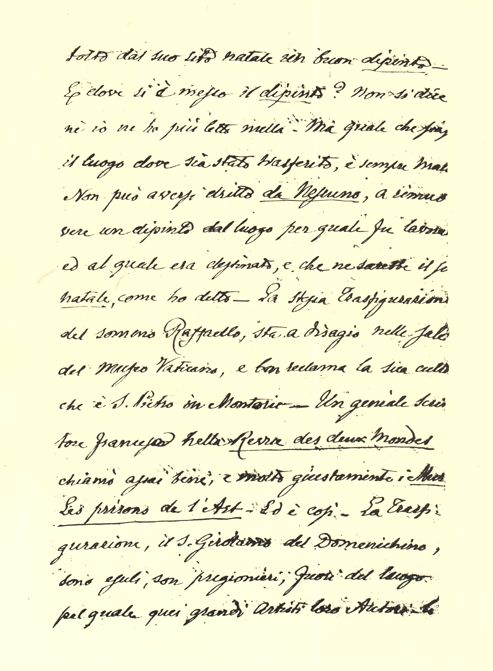 tolto dal suo sito natale un buon dipinto –
E dove si è messo il dipinto? Non si dice
nè io ne ho più letto nulla – Ma quale che sia,
il luogo dove sia stato trasferito, è sempre mal.
Non può aversi dritto da Nessuno, a rimuo
vere un dipinto dal luogo per quale fu lavora
ed al quale era destinato, e che ne sarebbe il
natale, come ho detto – La stessa Trasfigurazione
del sommo Raffaello, sta a disagio nelle Sale
del Museo Vaticano, e ben reclama la sua culla
che è S. Pietro in Montorio – Un geniale scrit
tore francese nella Revue des deux Mondes
chiamò assai bene, e molto giustamente i Mus
Les prisons de l'Art – Ed è così – La Trasfi-
gurazione, il S. Girolamo del Domenichino,
sono esuli, son prigionieri, fuori del luogo
pel quale quei grandi Artisti loro Autori